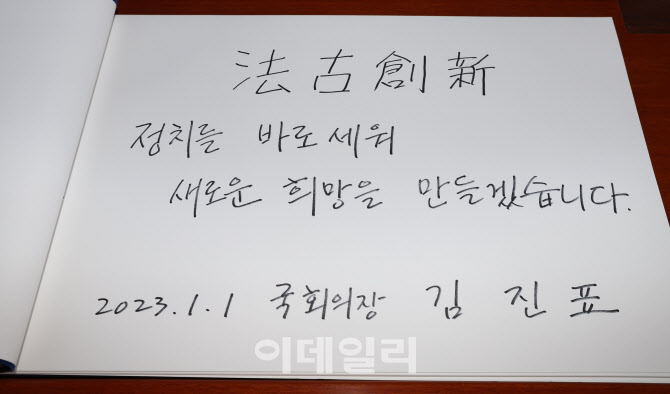 法古創新
정치를 바로세워
새로운 희망을 만들겠습니다.
2023.1.1 국회의장 김진표
이데일리